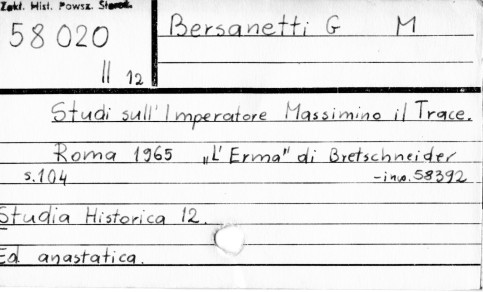 Zakł. Hist. Powsz. Staroż.
58 020
II 12
Bersanetti G M
Studi sull' Imperatore Massimino il Trace.
Roma 1965 „L' Erma" di Bretschneider
s.104 -inw. 58392
Studia Historica 12.
Ed anastatica.